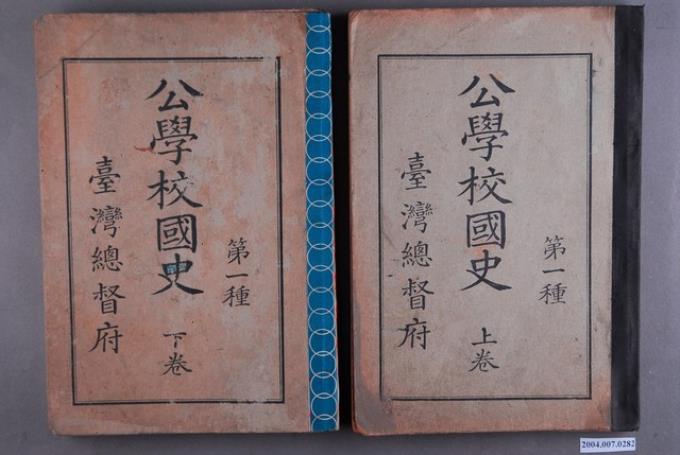 第一種
公學校國史
上卷
臺灣總督府
第一種
公學校國史
下卷
臺灣總督府
2004.007.0282